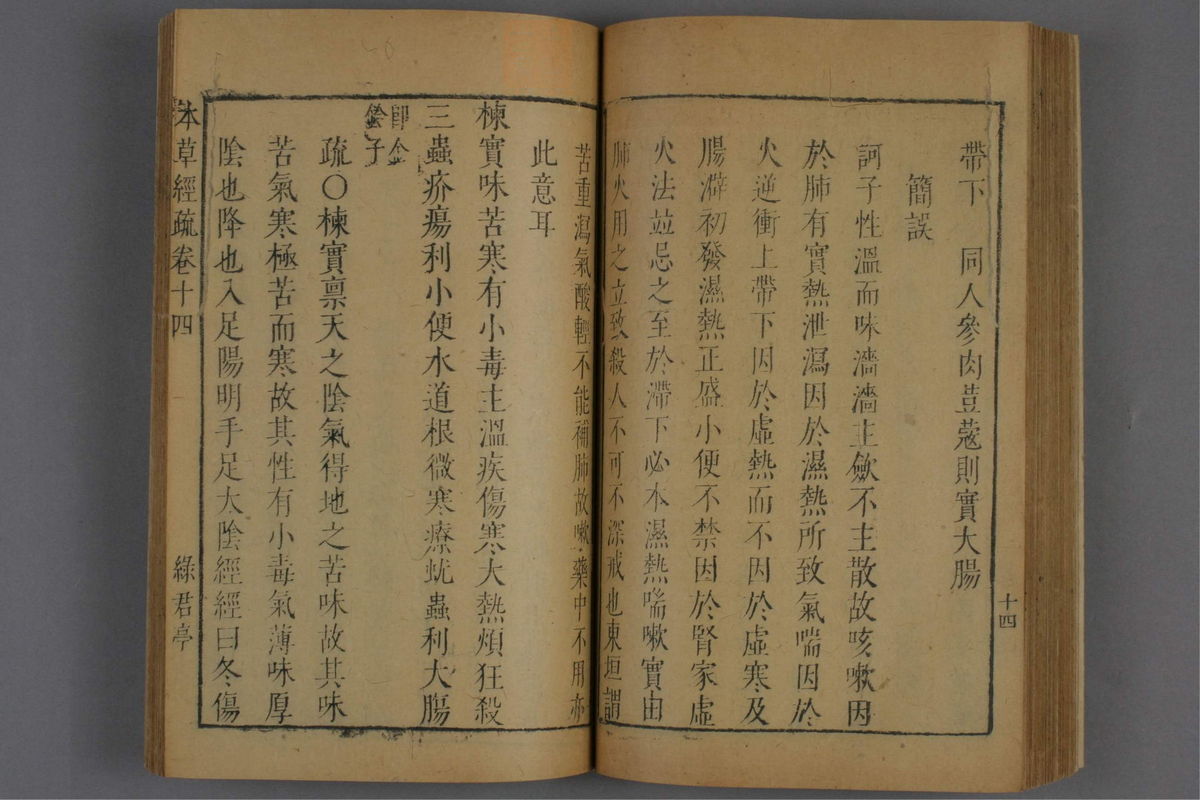 十四
帶下　同人參肉荳蔻則實大腸
簡誤
訶子性溫而味濇濇主斂不主散故咳嗽因
於肺有實熱泄瀉因於濕熱所致氣喘因於
火逆衝上帶下因於虛熱而不因於虛寒及
腸澼初發濕熱正盛小便不禁因於腎家虛
火法並忌之至於滯下必本濕熱喘嗽實由
肺火用之立致殺人不可不深戒也東垣謂
苦重瀉氣酸輕不能補肺故嗽藥中不用亦
此意耳
楝實味苦寒有小毒主溫疾傷寒大熱煩狂殺
三蟲疥瘍利小便水道根微寒療蚘蟲利大腸
即金
鈴子
疏〇楝實禀天之陰氣得地之苦味故其味
苦氣寒極苦而寒故其性有小毒氣薄味厚
陰也降也入足陽明手足太陰經經曰冬傷
本草經疏卷十四
綠君亭